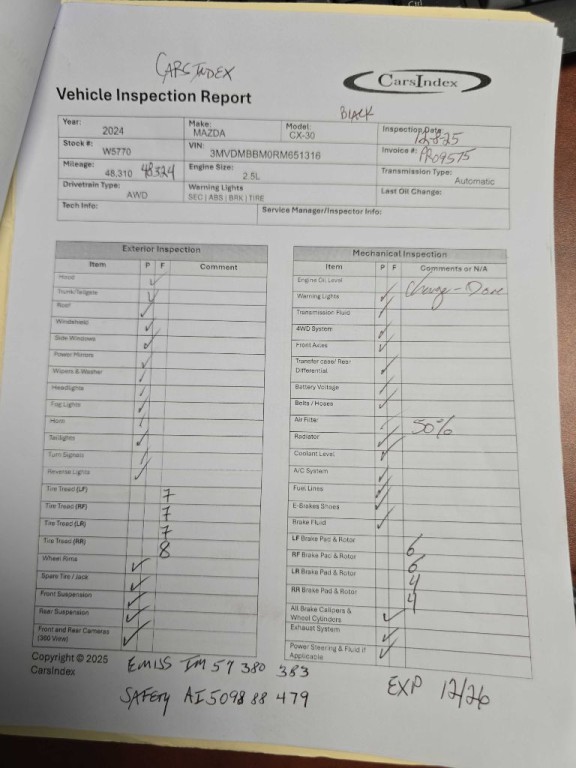 CARSINDEX
CarsIndex
Vehicle Inspection Report
BLACK
Year: 2024 Make: MAZDA Model: CX-30 Inspection Date: 12-8-25
Stock #: W5770 VIN: 3MVDMBBM0RM651316 Invoice #: PRO9575
Mileage: 48,310 48324 Engine Size: 2.5L Transmission Type: Automatic
Drivetrain Type: AWD Warning Lights SEC | ABS | BRK | TIRE Last Oil Change:
Tech Info: Service Manager/Inspector Info:
Exterior Inspection
Item P F Comment
Hood ✓
Trunk/Tailgate ✓
Roof ✓
Windshield ✓
Side Windows ✓
Power Mirrors ✓
Wipers & Washer ✓
Headlights ✓
Fog Lights ✓
Horn ✓
Taillights ✓
Turn Signals ✓
Reverse Lights ✓
Tire Tread (LF) 7
Tire Tread (RF) 7
Tire Tread (LR) 7
Tire Tread (RR) 8
Wheel Rims ✓
Spare Tire / Jack ✓
Front Suspension ✓
Rear Suspension ✓
Front and Rear Cameras ✓
(360 View)
Mechanical Inspection
Item P F Comments or N/A
Engine Oil Level Change - Done
Warning Lights ✓
Transmission Fluid ✓
4WD System ✓
Front Axles ✓
Transfer case/ Rear
Differential ✓
Battery Voltage ✓
Belts / Hoses ✓
Air Filter ✓ 50%
Radiator ✓
Coolant Level ✓
A/C System ✓
Fuel Lines ✓
E-Brakes Shoes ✓
Brake Fluid ✓
LF Brake Pad & Rotor 6
RF Brake Pad & Rotor 6
LR Brake Pad & Rotor 4
RR Brake Pad & Rotor 4
All Brake Calipers &
Wheel Cylinders ✓
Exhaust System ✓
Power Steering & Fluid if
Applicable ✓
Copyright © 2025
CarsIndex
EMISS IM 57 380 383
SAFETY AI5098 88 479
EXP 12/26